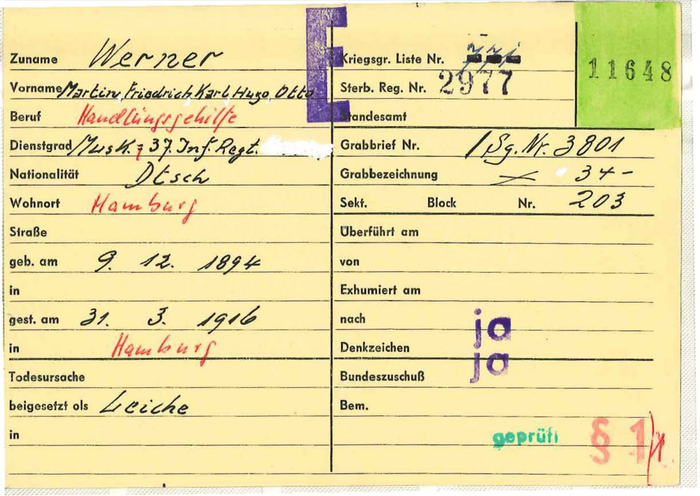 E
11648
Zuname Werner
Vorname Martin, Friedrich Karl Hugo Otto
Beruf Handlungsgehilfe
Dienstgrad Musk. 37. Inf. Regt.
Nationalität Dtsch
Wohnort Hamburg
Straße
geb. am 9. 12. 1894
in
gest. am 31. 3. 1916
in Hamburg
Todesursache
beigesetzt als Leiche
in
Kriegsgr. Liste Nr.
Sterb. Reg. Nr. 2977
Standesamt
Grabbrief Nr. / Sg. Nr. 3801
Grabbezeichnung 34-
Sekt. Block Nr. 203
Überführt am
von
Exhumiert am
nach ja
Denkzeichen ja
Bundeszuschuß
Bem.
geprüft § 1